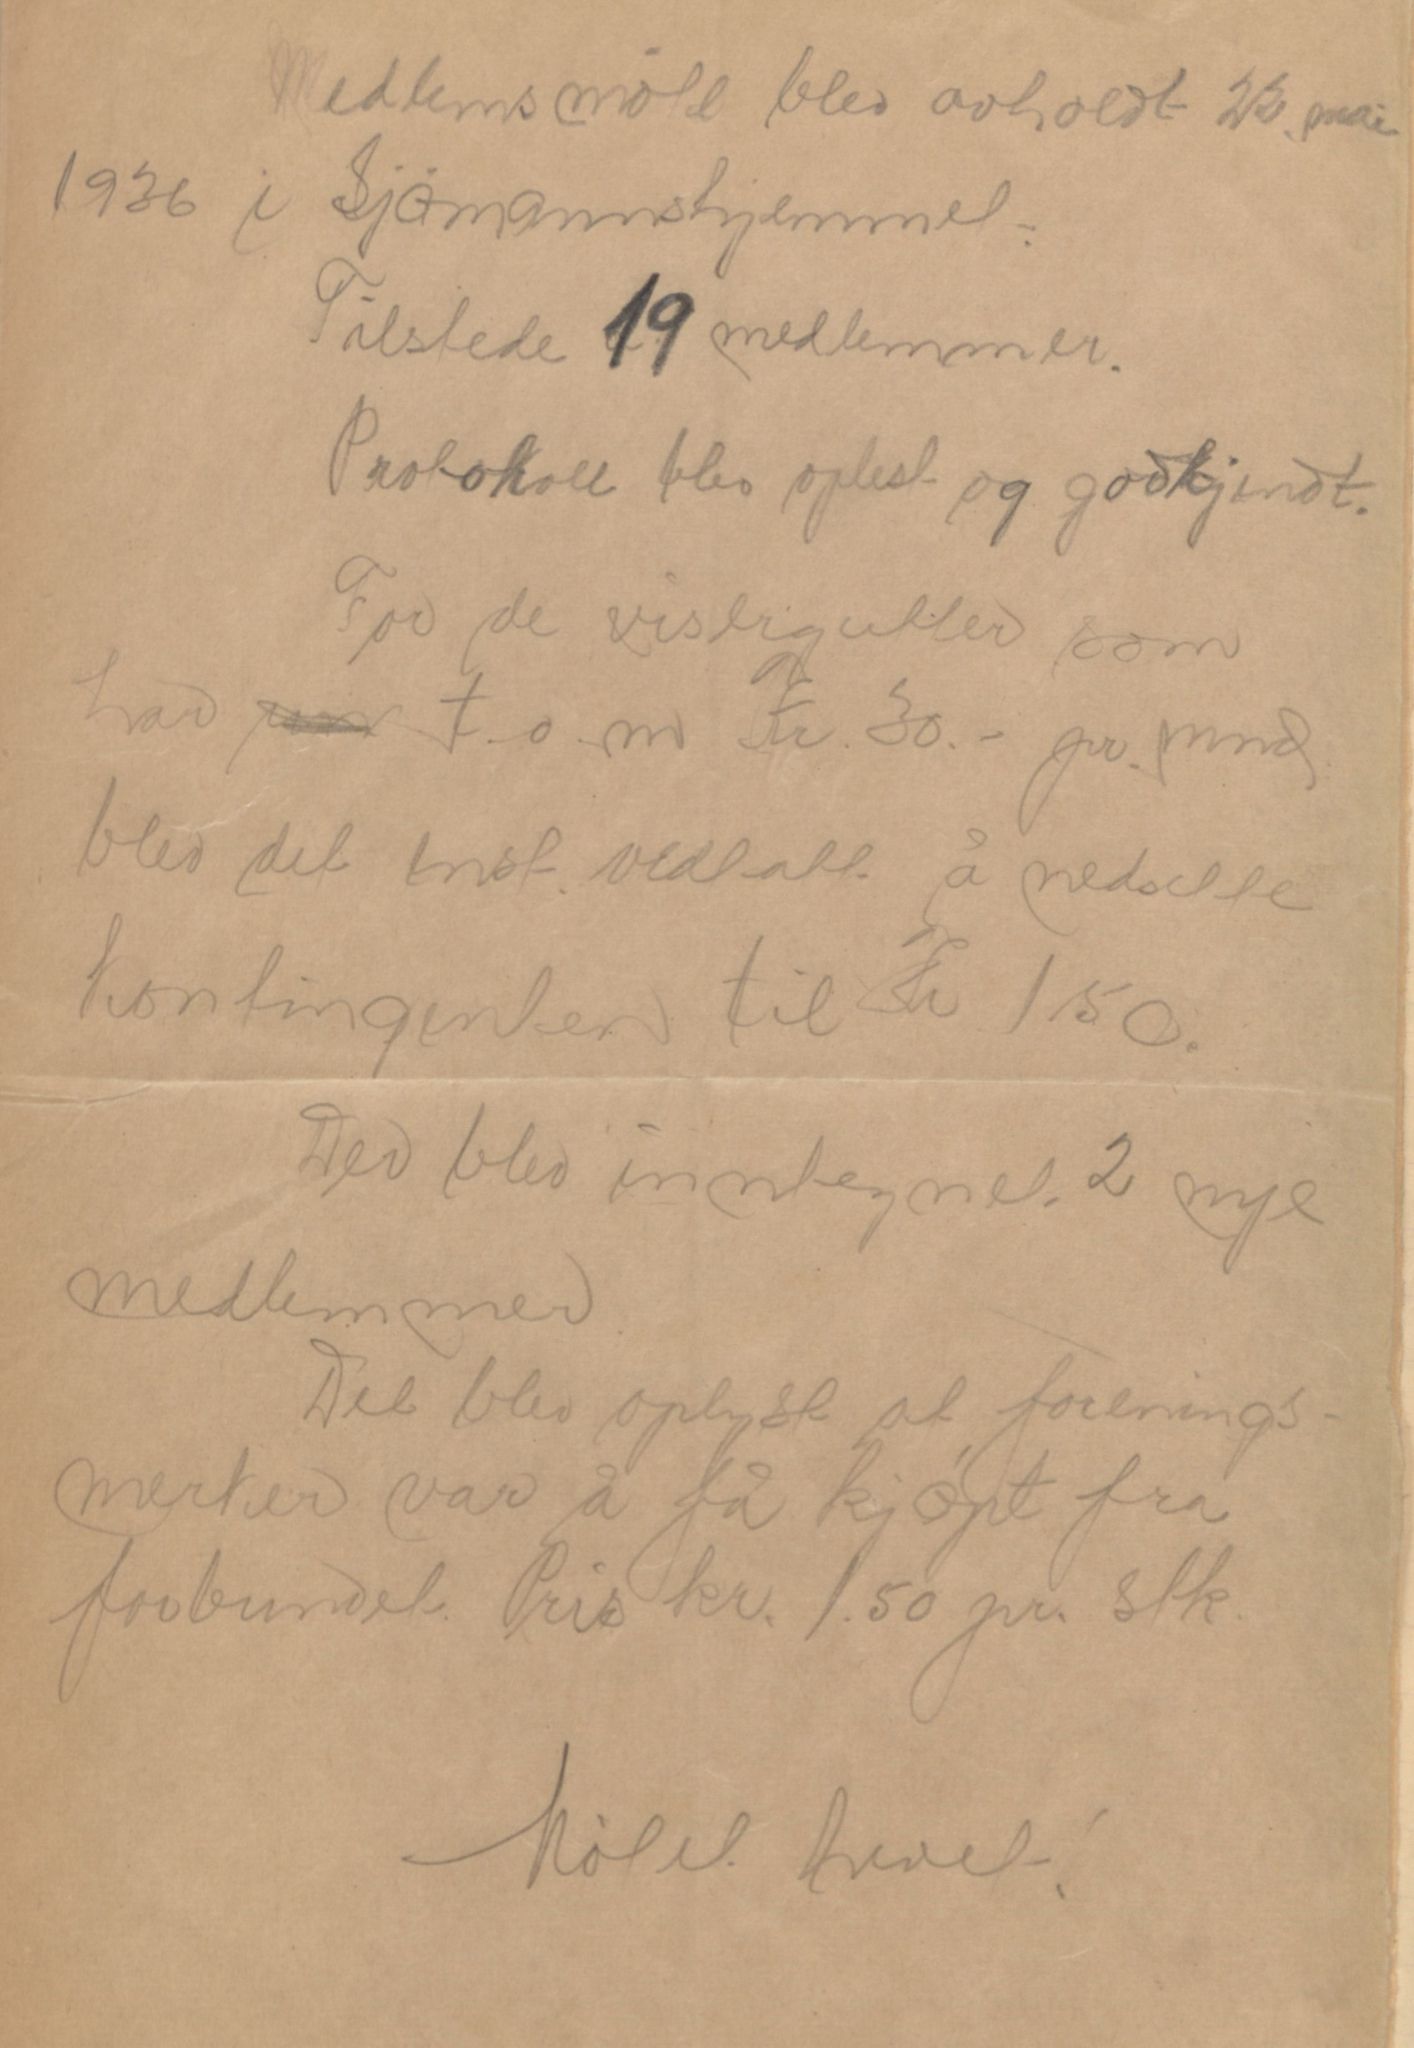 Medlemsmöte blev avholdt 23. mai
1936 i Sjömannshjemmet.
Tilstede 19 medlemmer.
Protokoll blev oplest og godkjendt.
For de visergutter som
har t.o.m Kr. 30.- pr. mnd
blev det enst. vedtatt å nedsette
kontingenten til Kr 1 50.
Der blev inntegnet 2 nye
medlemmer
Det blev oplyst at forenings-
merker var å få kjöpt fra
forbundet. Pris kr. 1.50 pr. stk.
Mötet hevet!